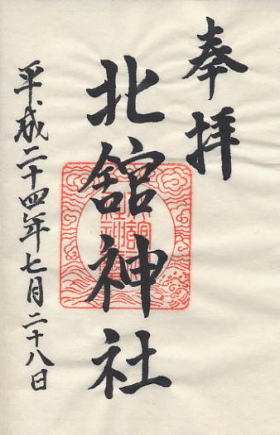 奉拝
北舘神社
平成二十四年七月二十八日